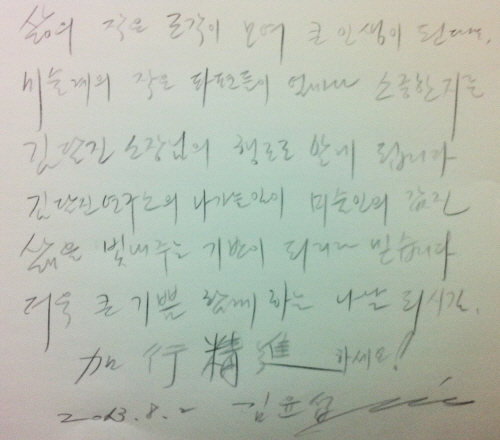 삶의 작은 조각이 모여 큰 인생이 된다면,
미술계의 작은 파편들이 얼마나 소중한지를
김달진 소장님의 행로로 알게 됩니다
김달진연구소의 나가는 길이 미술인의 값진
삶을 빛내주는 기반이 되리라 믿습니다
더욱 큰 기쁨 함께 하는 나날 되시길.
加行精進하세요!
2013.8.2 김윤섭